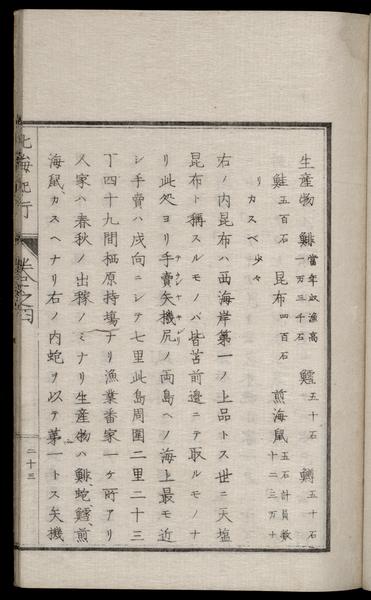 生産物 鯡當年収漁高一万三千石 鱈五十石 鱒五十石
鮭五百石 昆布四百石 煎海鼠五石計員数十二三万十
リカスベ少々
右ノ内昆布ハ西海岸第一ノ上品トス世ニ天塩
昆布ト稱スルモノハ皆苫前邊ニテ取ルモノナ
リ此処ヨリ手賣矢機尻ノ両島ヘノ海上最モ近
シ手賣ハ戌向ニシテ七里此島周囲二里二十三
丁四十九間栖原持塲ナリ漁業番家一ケ所アリ
人家ハ春秋ノ出稼ノミナリ生産物ハ鯡蛇鱈煎
海鼠カスヘナリ右ノ内蛇ヲ以テ第一トス矢機
北海紀行 卷之四
二十三